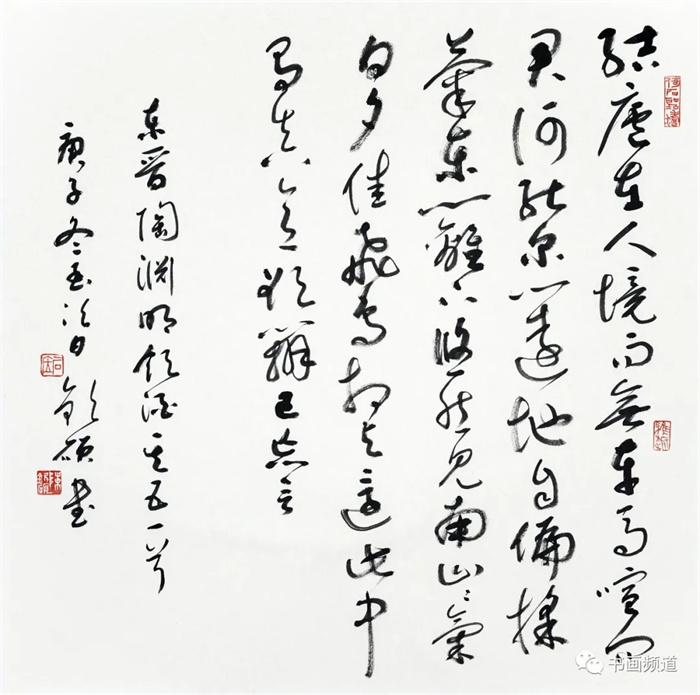 結廬在人境而無車馬喧问
君何能尔心遠地自偏採
菊东籬下悠然见南山〻氣
日夕佳飛鸟相与還此中
有真意欲辨已忘言
东晋陶淵明飲酒其五一首
庚子冬至次日 硕书
书画频道